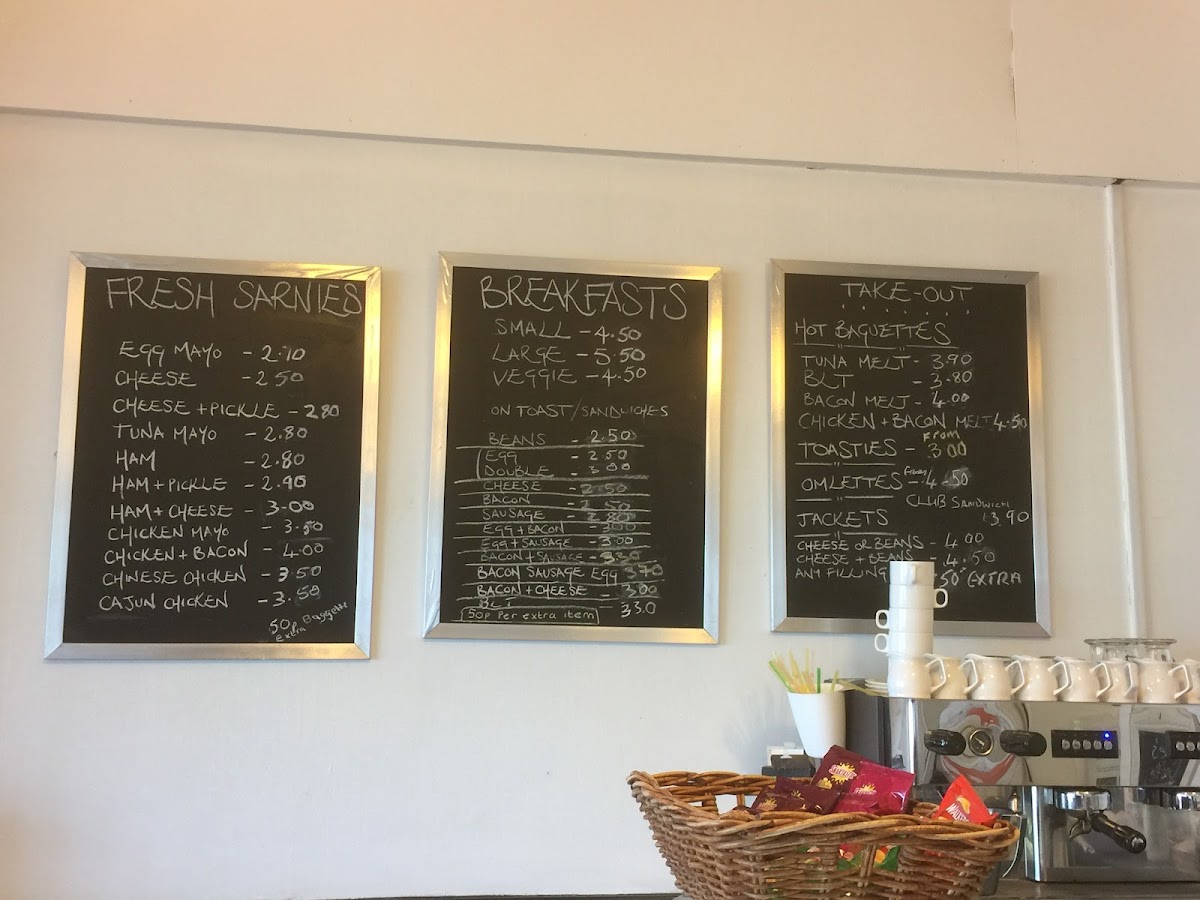 FRESH SARNIES
EGG MAYO - 2.70
CHEESE - 2.50
CHEESE + PICKLE - 2.80
TUNA MAYO - 2.80
HAM - 2.80
HAM + PICKLE - 2.90
HAM + CHEESE - 3.00
CHICKEN MAYO - 3.50
CHICKEN + BACON - 4.00
CHINESE CHICKEN - 3.50
CAJUN CHICKEN - 3.50
50p Baggette
Extra
BREAKFASTS
SMALL - 4.50
LARGE - 5.50
VEGGIE - 4.50
ON TOAST/SANDWICHES
BEANS - 2.50
EGG - 2.50
DOUBLE - 3.00
CHEESE - 2.50
BACON - 2.50
SAUSAGE - 2.80
EGG + BACON - 3.00
EGG + SAUSAGE - 3.00
BACON + SAUSAGE - 3.30
BACON SAUSAGE EGG 3.70
BACON + CHEESE - 3.00
BLT 3.30
50p Per extra item
TAKE-OUT
HOT BAGUETTES
TUNA MELT - 3.90
BLT - 3.80
BACON MELT - 4.00
CHICKEN + BACON MELT 4.50
TOASTIES - From 3.00
OMLETTES - From 4.50
CLUB SANDWICH
JACKETS 3.90
CHEESE OR BEANS - 4.00
CHEESE + BEANS - 4.50
ANY FILLING 50 EXTRA
WALKERS